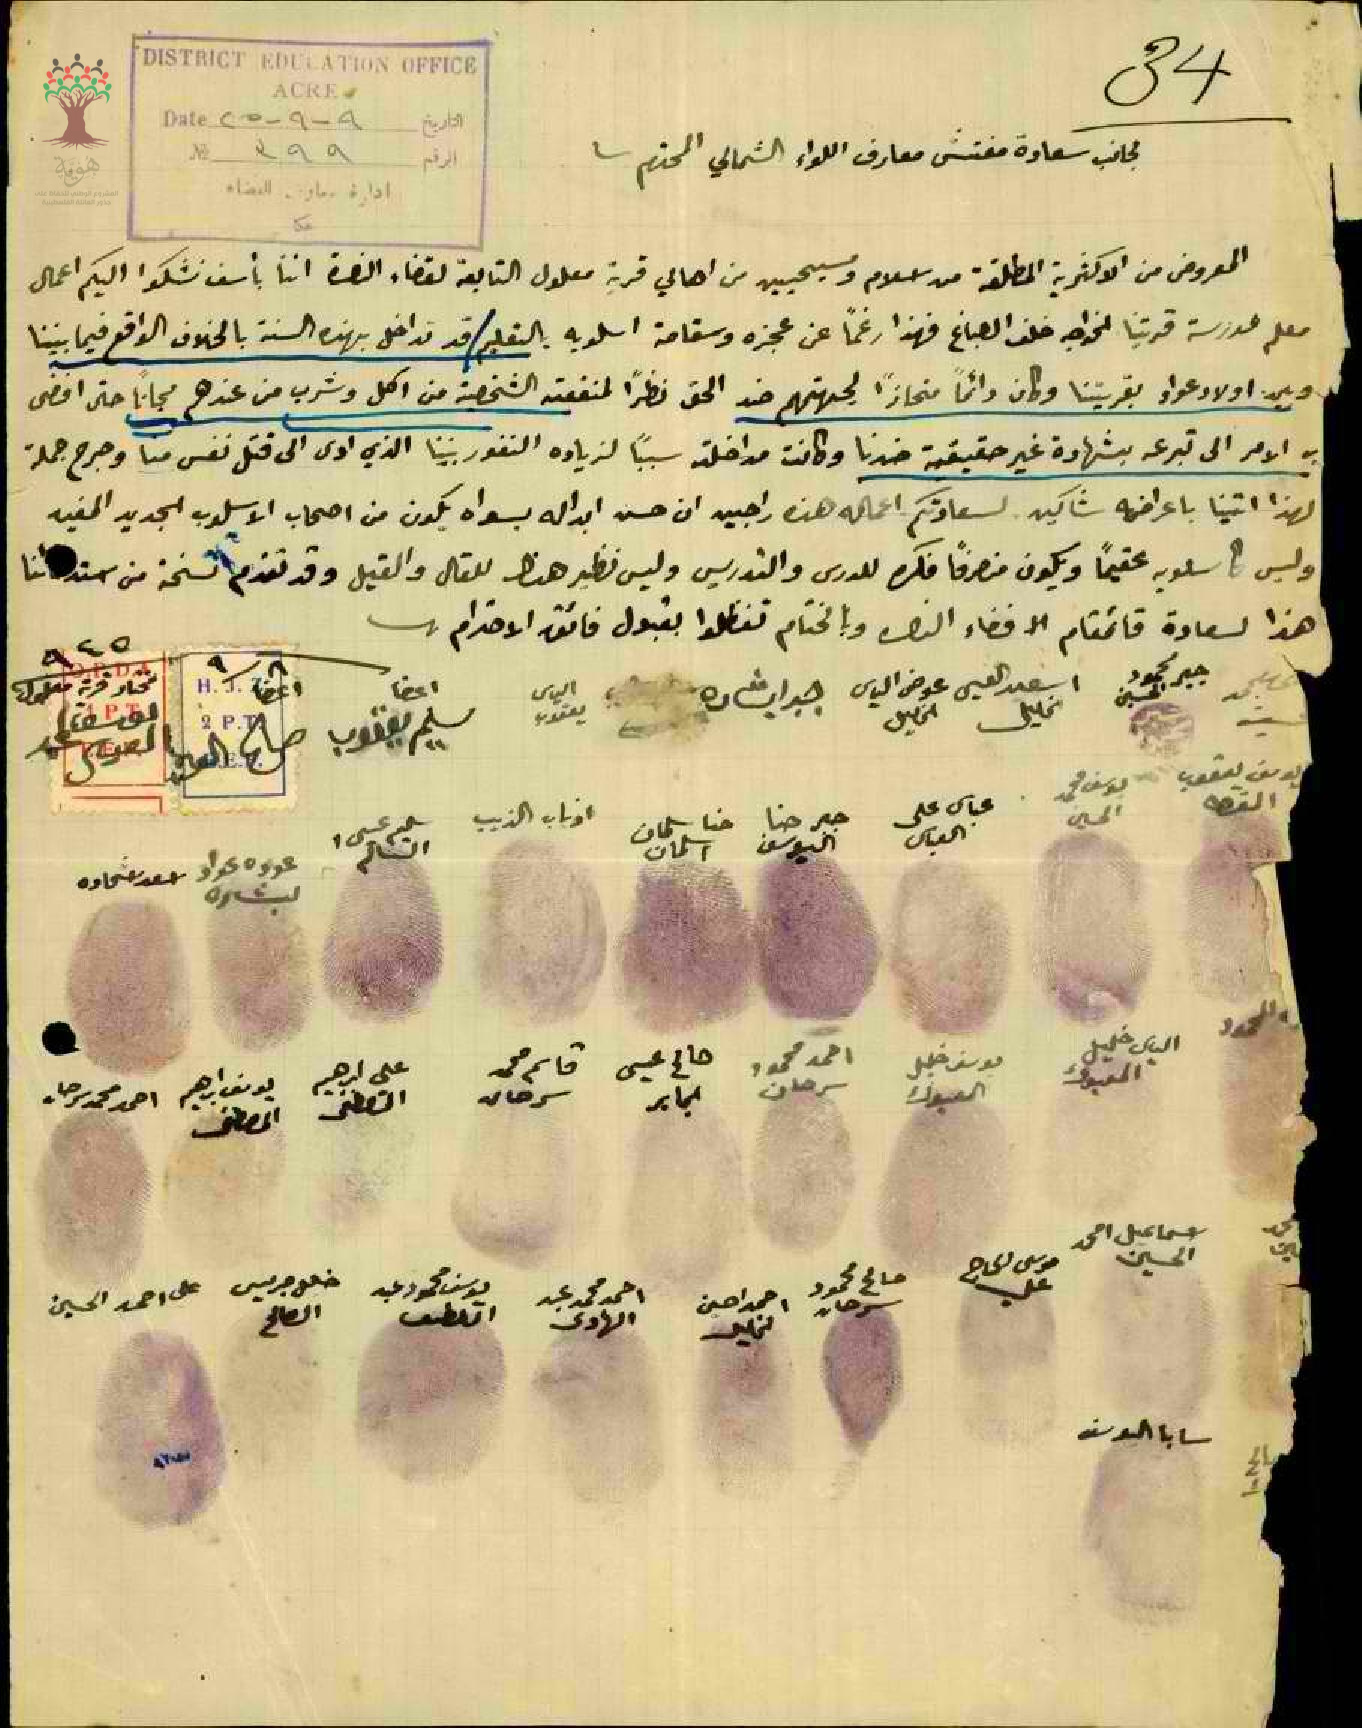 34
DISTRICT EDUCATION OFFICE
ACRE
Date ٩-٩-٢٥ التاريخ
№ ٣٩٩ الرقم
عكا
هوية
لجانب سعادة مفتش معارف اللواء الشمالي المحترم
المعروض من الاكثرية المطلقة من اسلام ومسيحيين من اهالي قرية معلول التابعة لقضاء الناصرة اننا بأسف نشكوا اليكم اعمال
معلم مدرسة قريتنا الخواجه خلف الصباغ فهذا رغماً عن عجزه وسقامة اسلوبه بالتعليم/ قد تداخل بهذه السنة بالخلاف الواقع فيما بيننا
وبين اولاد عواد بقريتنا وكان دائماً متحازاً لجهتهم ضد الحق نظراً لمنفعته الشخصية من اكل وشرب من عندهم مجاناً حتى افضى
به الامر الى تبرعه بشهادة غير حقيقية ضدنا وكانت مداخلته سبباً لزياده النفور بيننا الذي ادى الى قتل نفس منا وجرح جملة
لهذا اتينا باعراضه شاكين لسعادتكم اعماله هذه راجين ان حسن ابداله بسواه يكون من اصحاب الاسلوب الجديد المفيد
وليس كاسلوبه عقيماً ويكون منصرفاً فكره للدرس والتدريس وليس نظير هذا للقال والقيل وقد تقدم نسخة من
هذا لسعادة قائمقام قضاء الناصره وبالختام تفضلوا بقبول فائق الاحترام
٩٢٥
٨/٩
H. J.
2 P.T.
1 P.T.
مختار قرية معلول
اعضا
صالح
اعضا
سليم يعقوب
الياس
يعقوب
جبر ابو شاده
عوض الياس
الخليل
اسعد العيسى
الخليل
جبر محمود
الحسين
يوسف يعقوب
يوسف محمد
الحسين
عباس علي
العباس
جبر حنا
اليوسف
حنا سلمان
اسلمان
ذياب الذيب
سليم عيسى
السالم
عوده عواد
سعد شحاده
المحمود
الياس خليل
يوسف خليل
احمد محمود
سرحان
صالح عيسى
الجابر
قاسم محمد
سرحان
علي ابرهيم
المصطفى
يوسف ابرهيم
المصطفى
احمد محمد سرحان
اسماعيل احمد
الحسين
موسى الحاج
علي
صالح محمود
سرحان
احمد حسين
الخليل
احمد محمد عبد
الهادي
يوسف محمود عبد
اللطيف
خليل جريس
الصالح
علي احمد الحسين
سابا اليوسف